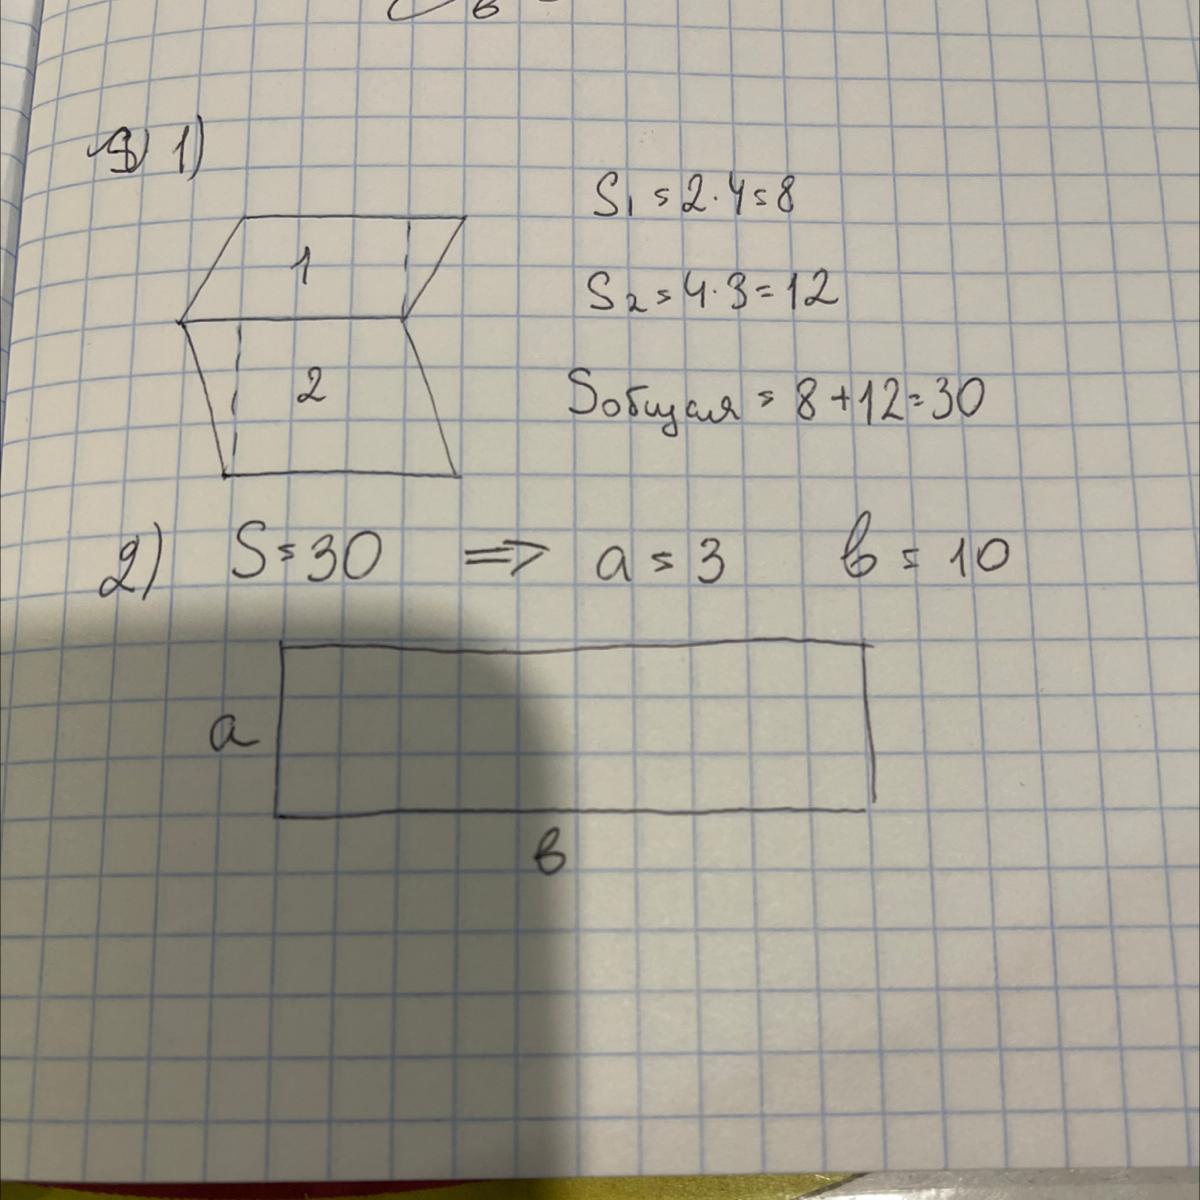 1)
S₁ = 2·4 = 8
1
S₂ = 4·3 = 12
2
Sобщая = 8 + 12 = 30
2) S = 30 => a = 3 в = 10
a
в